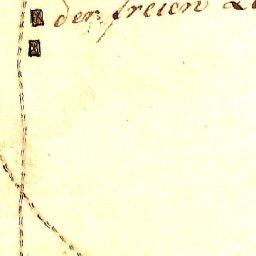 der freien